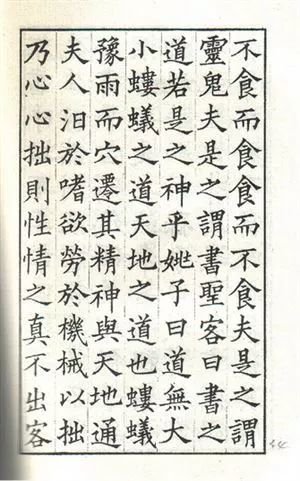 不食而食食而不食夫是之謂
靈鬼夫是之謂書聖客曰書之
道若是之神乎姚子曰道無大
小螻蟻之道天地之道也螻蟻
豫雨而穴遷其精神與天地通
夫人汩於嗜欲勞於機械以拙
乃心心拙則性情之真不出客